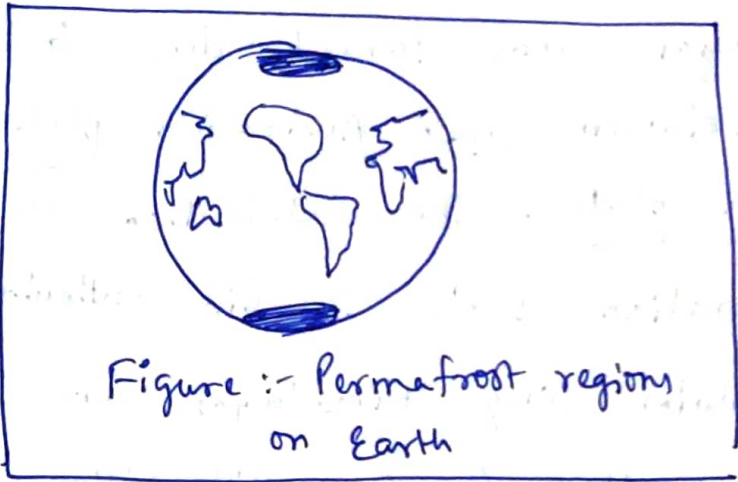 Figure :- Permafrost regions
on Earth